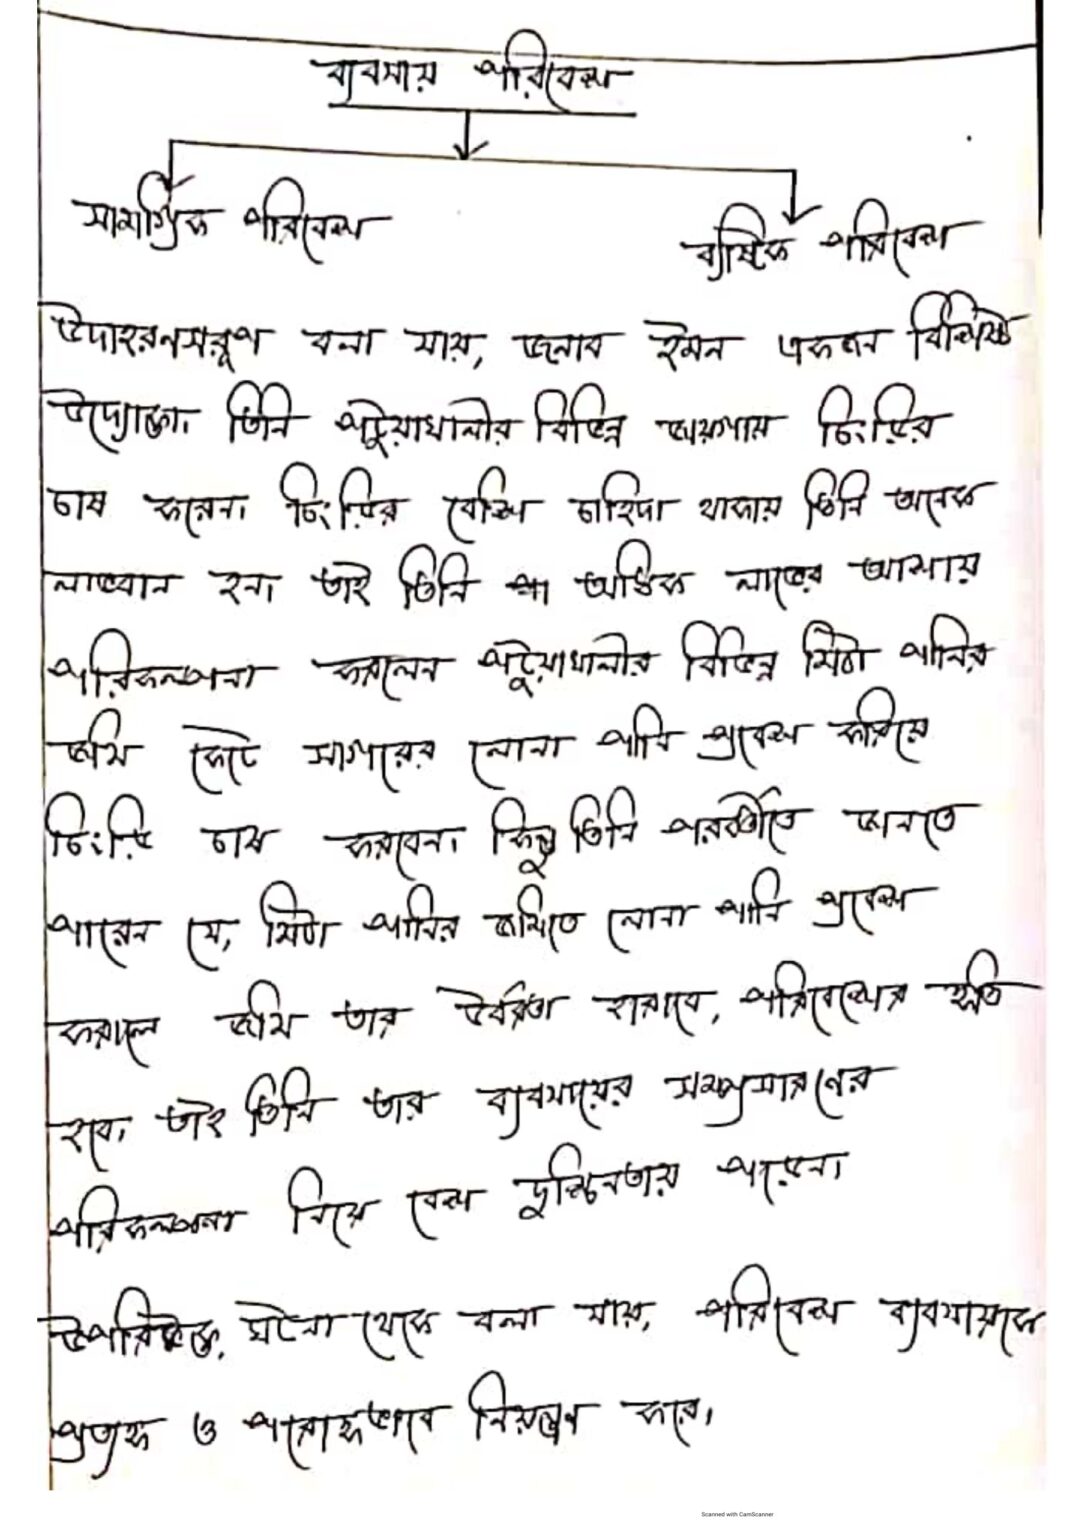 ব্যবসায় পরিবেশ
সামগ্রিক পরিবেশ
ব্যষ্টিক পরিবেশ
উদাহরণসরূপ বলা যায়, জনাব ইমন একজন বিশিষ্ট
উদ্যোক্তা। তিনি পটুয়াখালীর বিভিন্ন জায়গায় চিংড়ির
চাষ করেন। চিংড়ির বেশি চাহিদা থাকায় তিনি অনেক
লাভবান হন। তাই তিনি অধিক লাভের আশায়
পরিকল্পনা করলেন পটুয়াখালীর বিভিন্ন মিঠা পানির
জমি কেটে সাগরের লোনা পানি প্রবেশ করিয়ে
চিংড়ি চাষ করবেন। কিন্তু তিনি পরবর্তীতে জানতে
পারেন যে, মিঠা পানির জমিতে লোনা পানি প্রবেশ
করালে জমি তার উর্বরতা হারাবে, পরিবেশের ক্ষতি
হবে। তাই তিনি তার ব্যবসায়ের সম্প্রসারণের
পরিকল্পনা নিয়ে বেশ দুশ্চিনতায় পড়েন।
উপরিউক্ত, ঘটনা থেকে বলা যায়, পরিবেশ ব্যবসায়কে
প্রত্যক্ষ ও পরোক্ষভাবে নিয়ন্ত্রণ করে।
Scanned with CamScanner